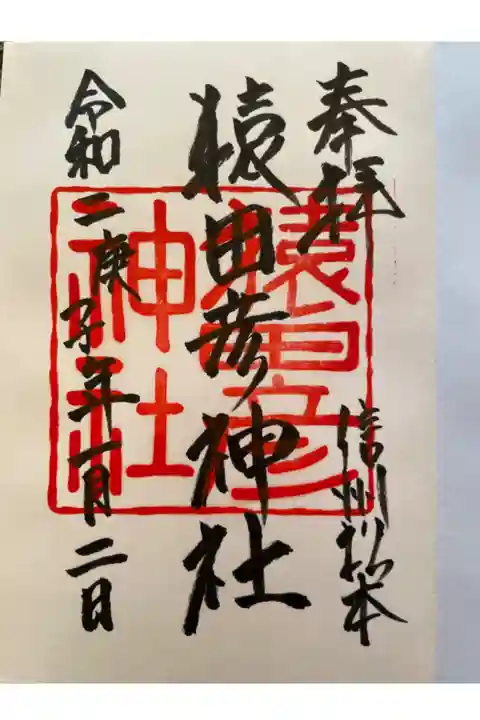 奉拝
信州松本
猿田彦神社
令和二庚子年一月二日
猿田彦神社